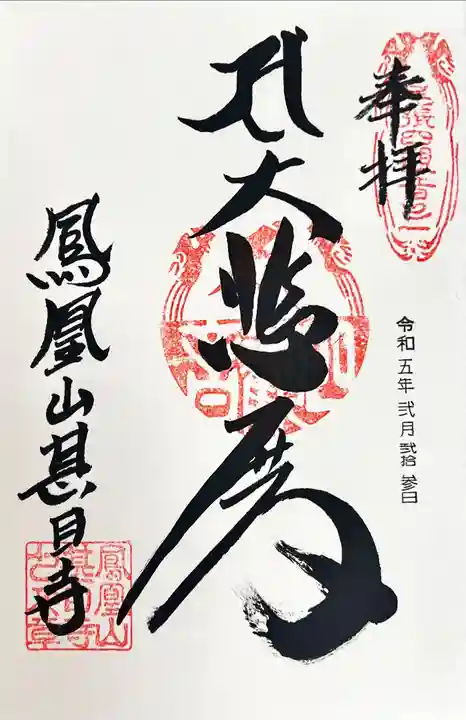 奉拝
令和五年 弐月 弐拾 参日
大悲殿
鳳凰山甚目寺
鳳凰山
甚目寺